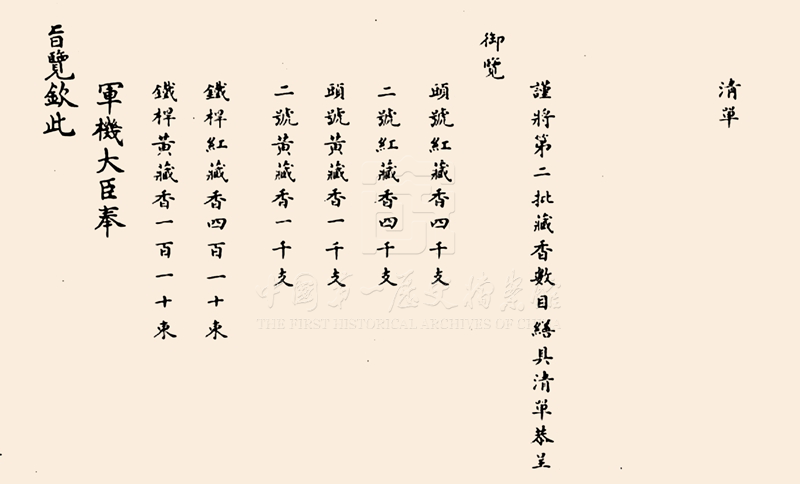 清單
謹將第二批藏香數目繕具清單恭呈
御覽
頭號紅藏香四千支
二號紅藏香四千支
頭號黃藏香一千支
二號黃藏香一千支
鐵桿紅藏香四百一十束
鐵桿黃藏香一百一十束
軍機大臣奉
旨覽欽此
中國第一歷史檔案館
THE FIRST HISTORICAL ARCHIVES OF CHINA